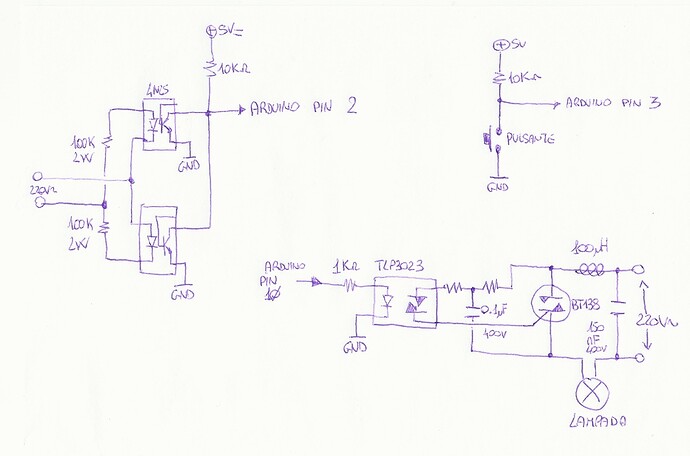 5V=
10KΩ
4N25
ARDUINO PIN 2
100K
2W
GND
220V~
100K
2W
GND
5V
10KΩ
ARDUINO PIN 3
PULSANTE
GND
ARDUINO
PIN
10
1KΩ
TLP3023
GND
0.1µF
400V
100µH
BT138
150
nF
400V
220V~
LAMPADA